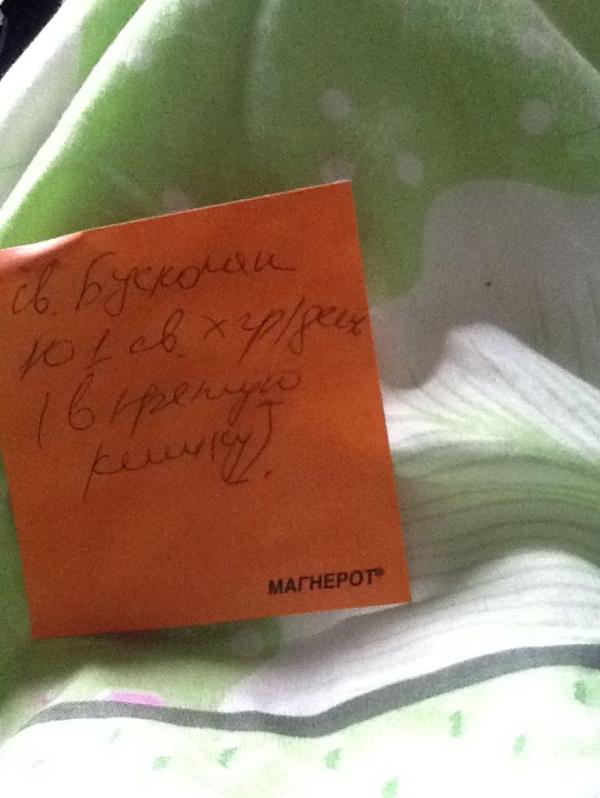 св. Бускопан
по 1 св. × 2р/день
(в прямую
кишку).
МАГНЕРОТ®